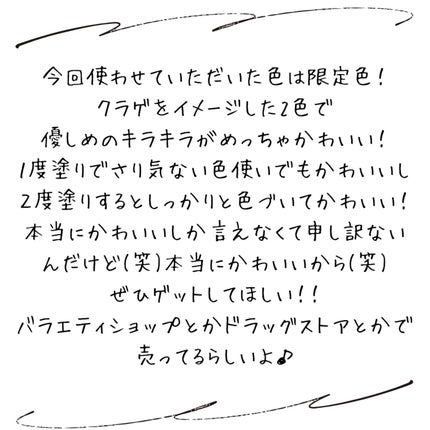 今回使わせていただいた色は限定色!
クラゲをイメージした2色で
優しめのキラキラがめっちゃかわいい!
1度塗りでさり気ない色使いでもかわいいし
2度塗りするとしっかりと色づいてかわいい!
本当にかわいいしか言えなくて申し訳ない
んだけど(笑)本当にかわいいから(笑)
ぜひゲットしてほしい!!
バラエティショップとかドラッグストアとかで
売ってるらしいよ♪